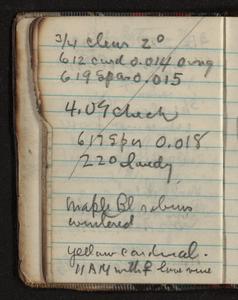 3/4 clear 2°
612 card 0.014 avg
619 Spar 0.015
4.09 check
617 Spar 0.018
220 cloudy
Maple Bl robins
wintered
yellow cardinal.
11 AM with